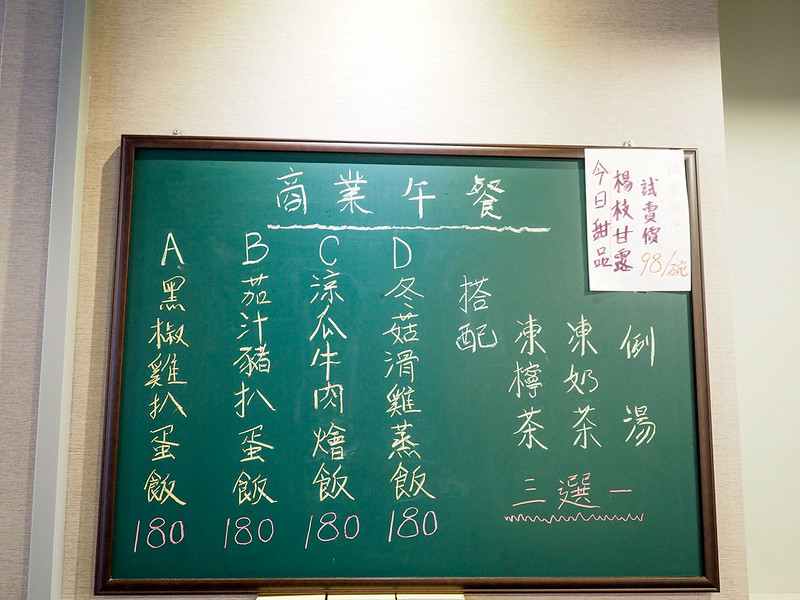 商業午餐
A黑椒雞扒蛋飯
180
B茄汁豬扒蛋飯
180
C涼瓜牛肉燴飯
180
D冬菇滑雞蒸飯
180
搭配
凍檸茶
凍奶茶
例湯
三選一
今日甜品
楊枝甘露
試賣價
98/碗